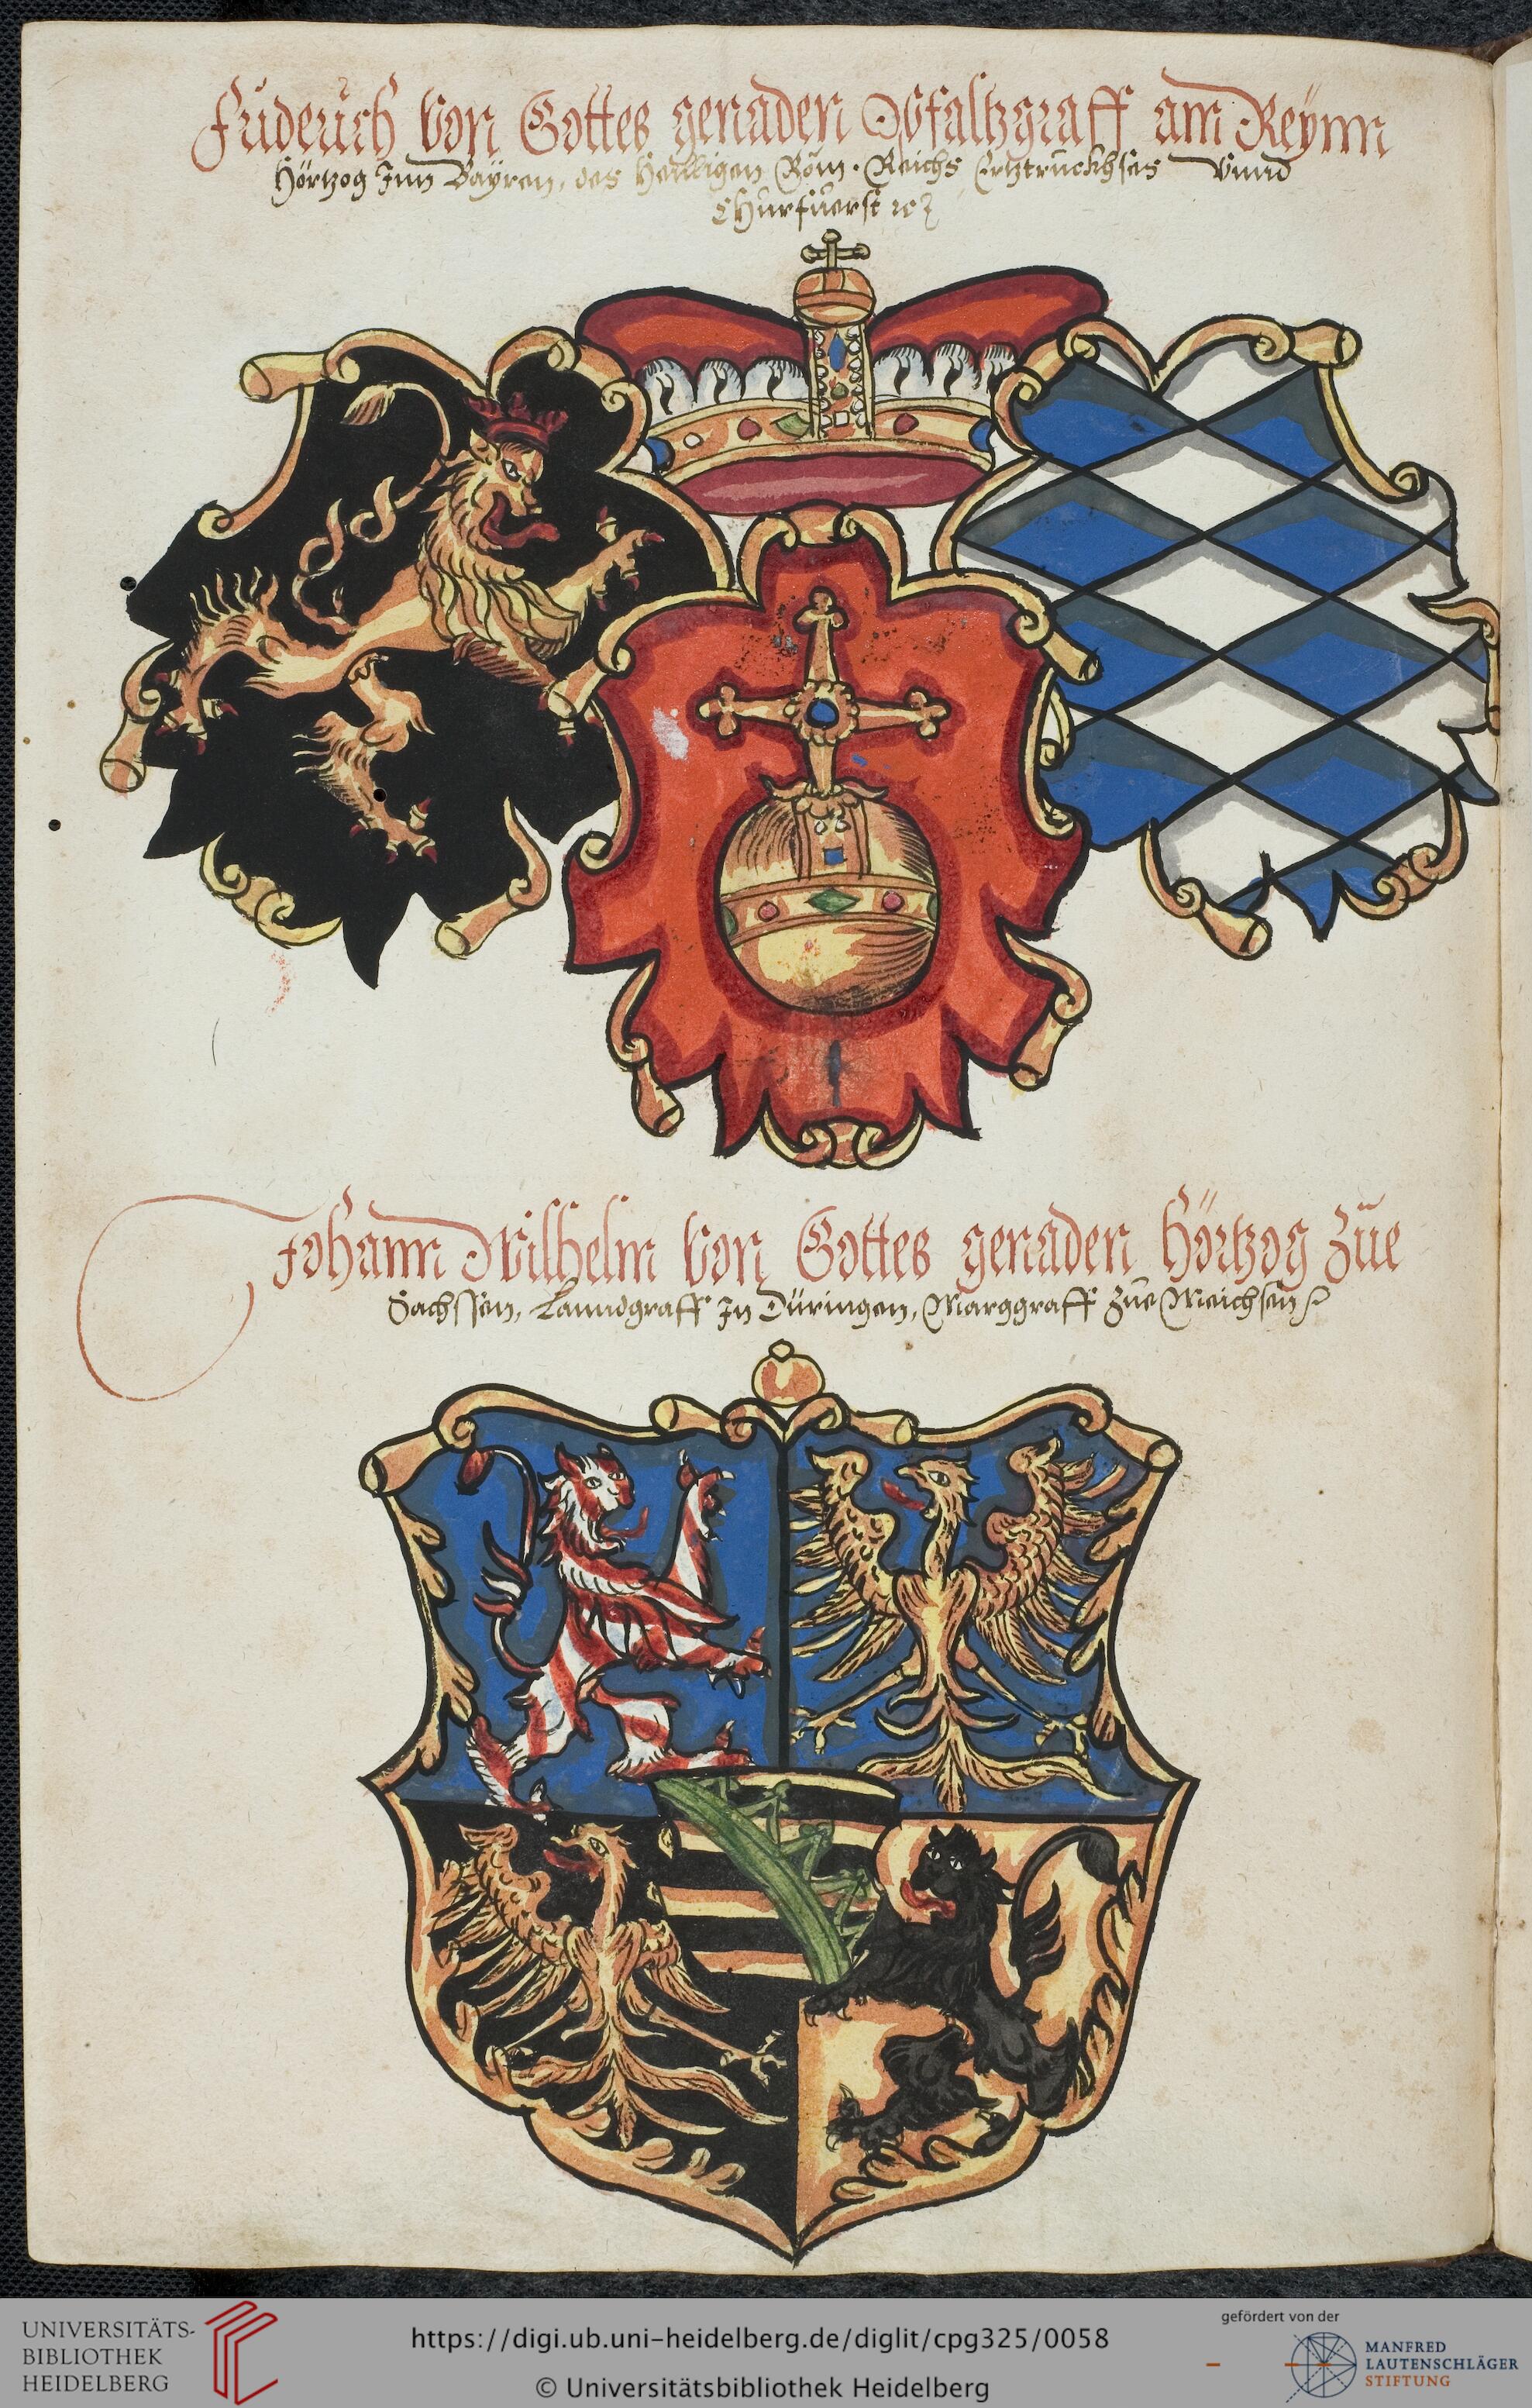 Friderich Von Gottes genaden Pfaltzgraff am Reynn
Hörtzog Inn Bayren, des Heilligen Röm. Reichs Ertztruckhses Vnnd
CHurfüerst
Johann Wilhelm Von Gottes genaden Hörtzog Zue
Sachssen, Lanndgraff In Düringen, Marggraff Zue Meichsen
UNIVERSITÄTS-
BIBLIOTHEK
HEIDELBERG
https://digi.ub.uni-heidelberg.de/diglit/cpg325/0058
© Universitätsbibliothek Heidelberg
gefördert von der
MANFRED
LAUTENSCHLÄGER
STIFTUNG